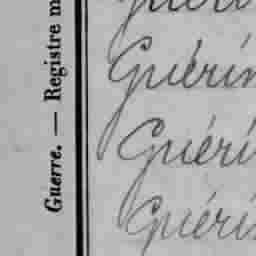 Guerre. — Registre m
Guérin
Guéri
Guéri